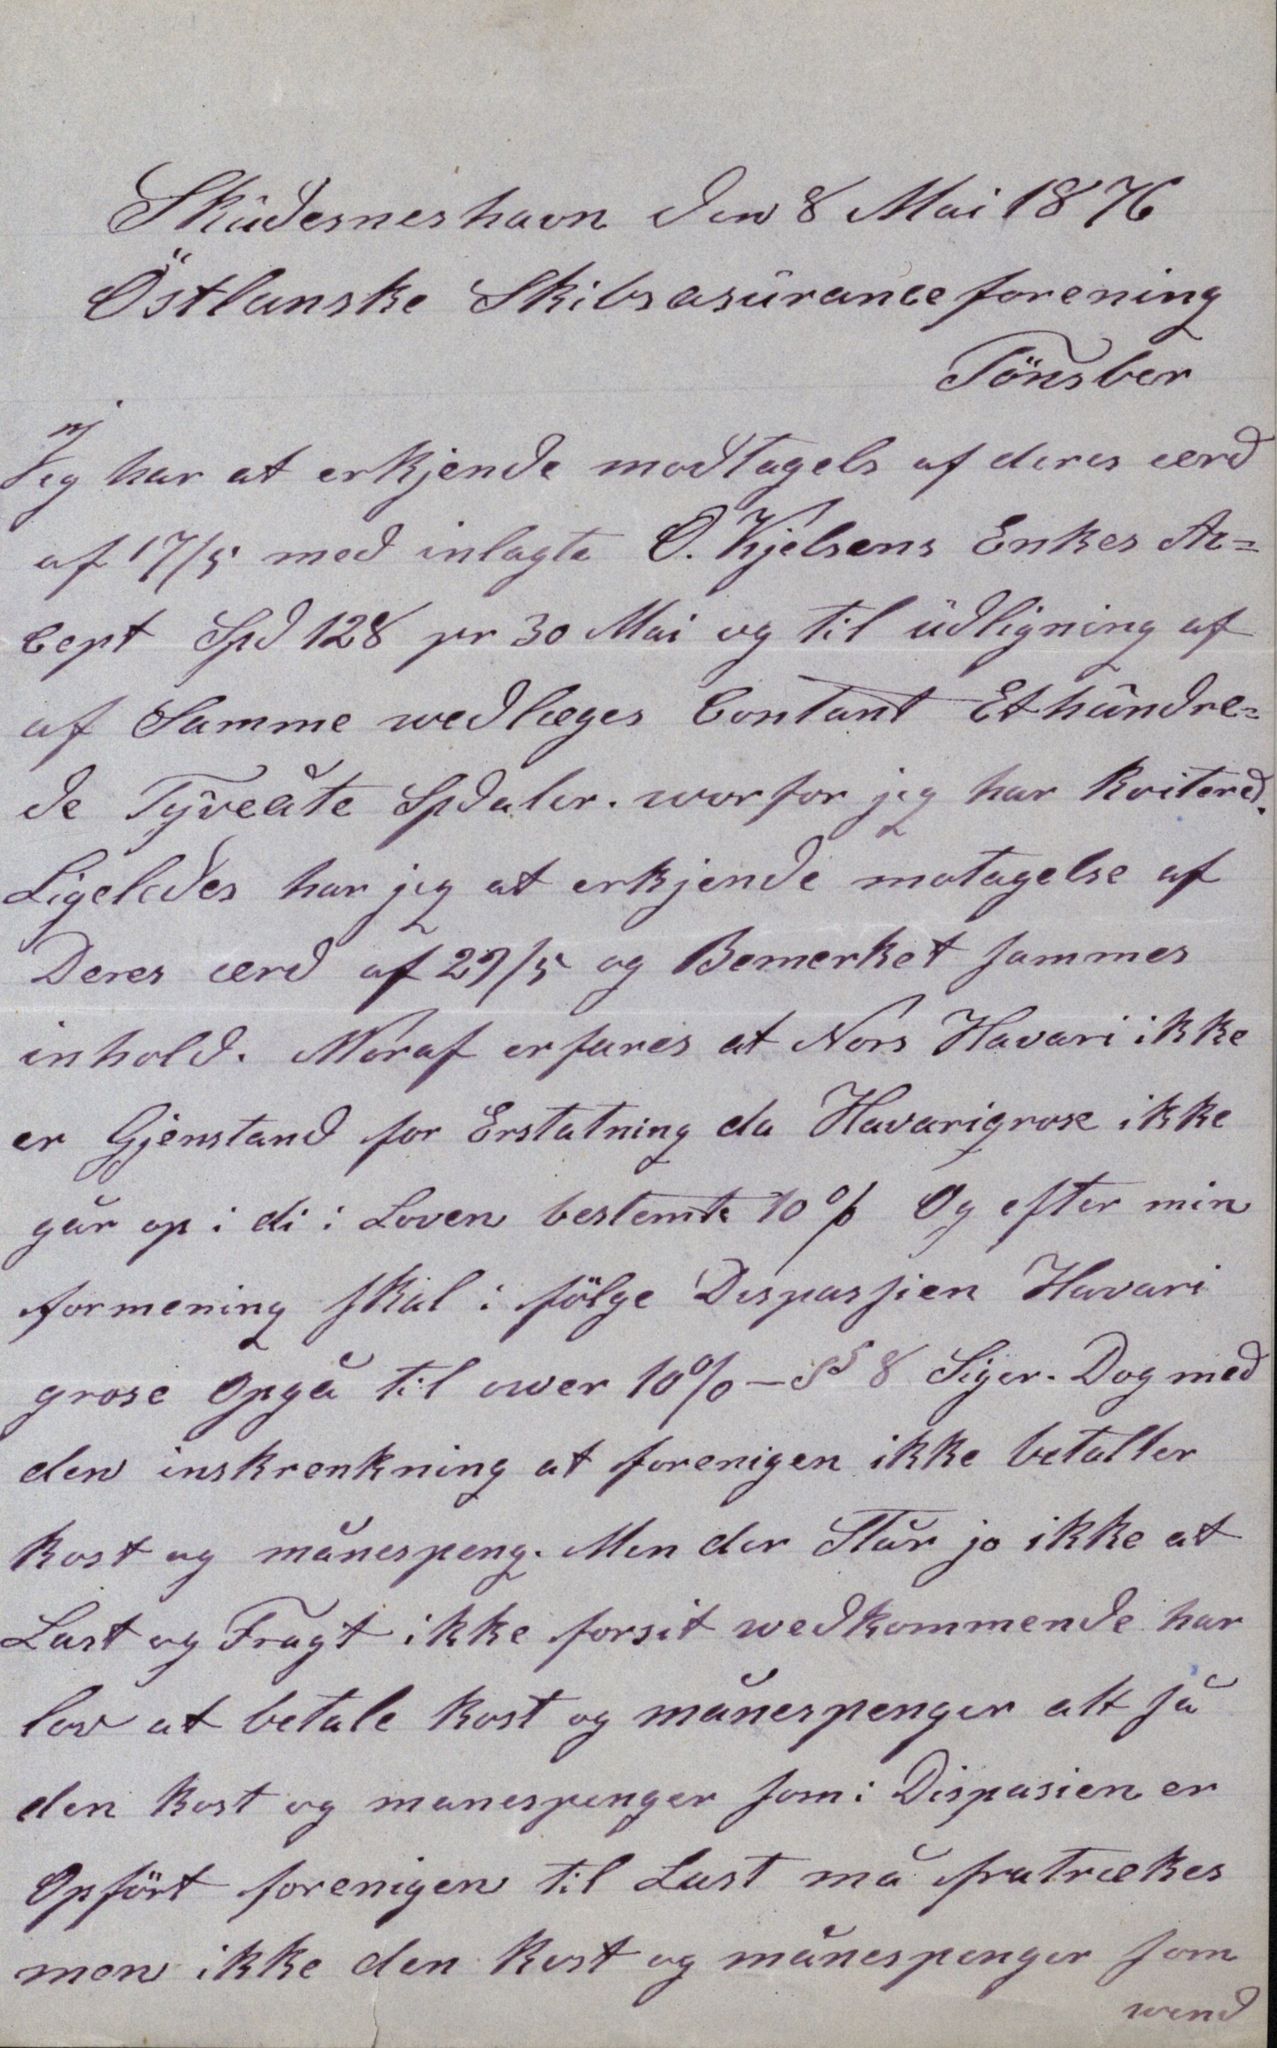 Skudesneshavn den 8 Mai 1876
Östlanske Skibsasuranceforening
Tönsber
Jeg har at erkjende modtagels af deres ærd
af 17/5 med inlagte O. Kjelsens Enkes Ac=
cept Spd 128 pr 30 Mai og til udligning af
af Samme wedlæges Contant Ethundre=
de Tyveåte Spdaler. worfor jeg har kviterd.
Ligeledes har jeg at erkjende motagelse af
Deres ærd af 29/5 og Bemerket sammes
inhold. Woraf erfares at Nors Havari ikke
er Gjenstand for Erstatning da Havarigrose ikke
går op i di i Loven bestemte 10% Og efter min
formening skal i fölge Dispassien Havari
grose Opgå til ower 10% – § 8 Siger. Dog med
den inskrenkning at forenigen ikke betaller
kost og månespeng. Men der Står jo ikke at
Last og Fragt ikke forsit wedkommende har
lov at betale kost og månespenger alt så
den kost og manespenger som i Dispasien er
Opfört forenigen til Last må fratrækes
men ikke den kost og månespenger som
wend